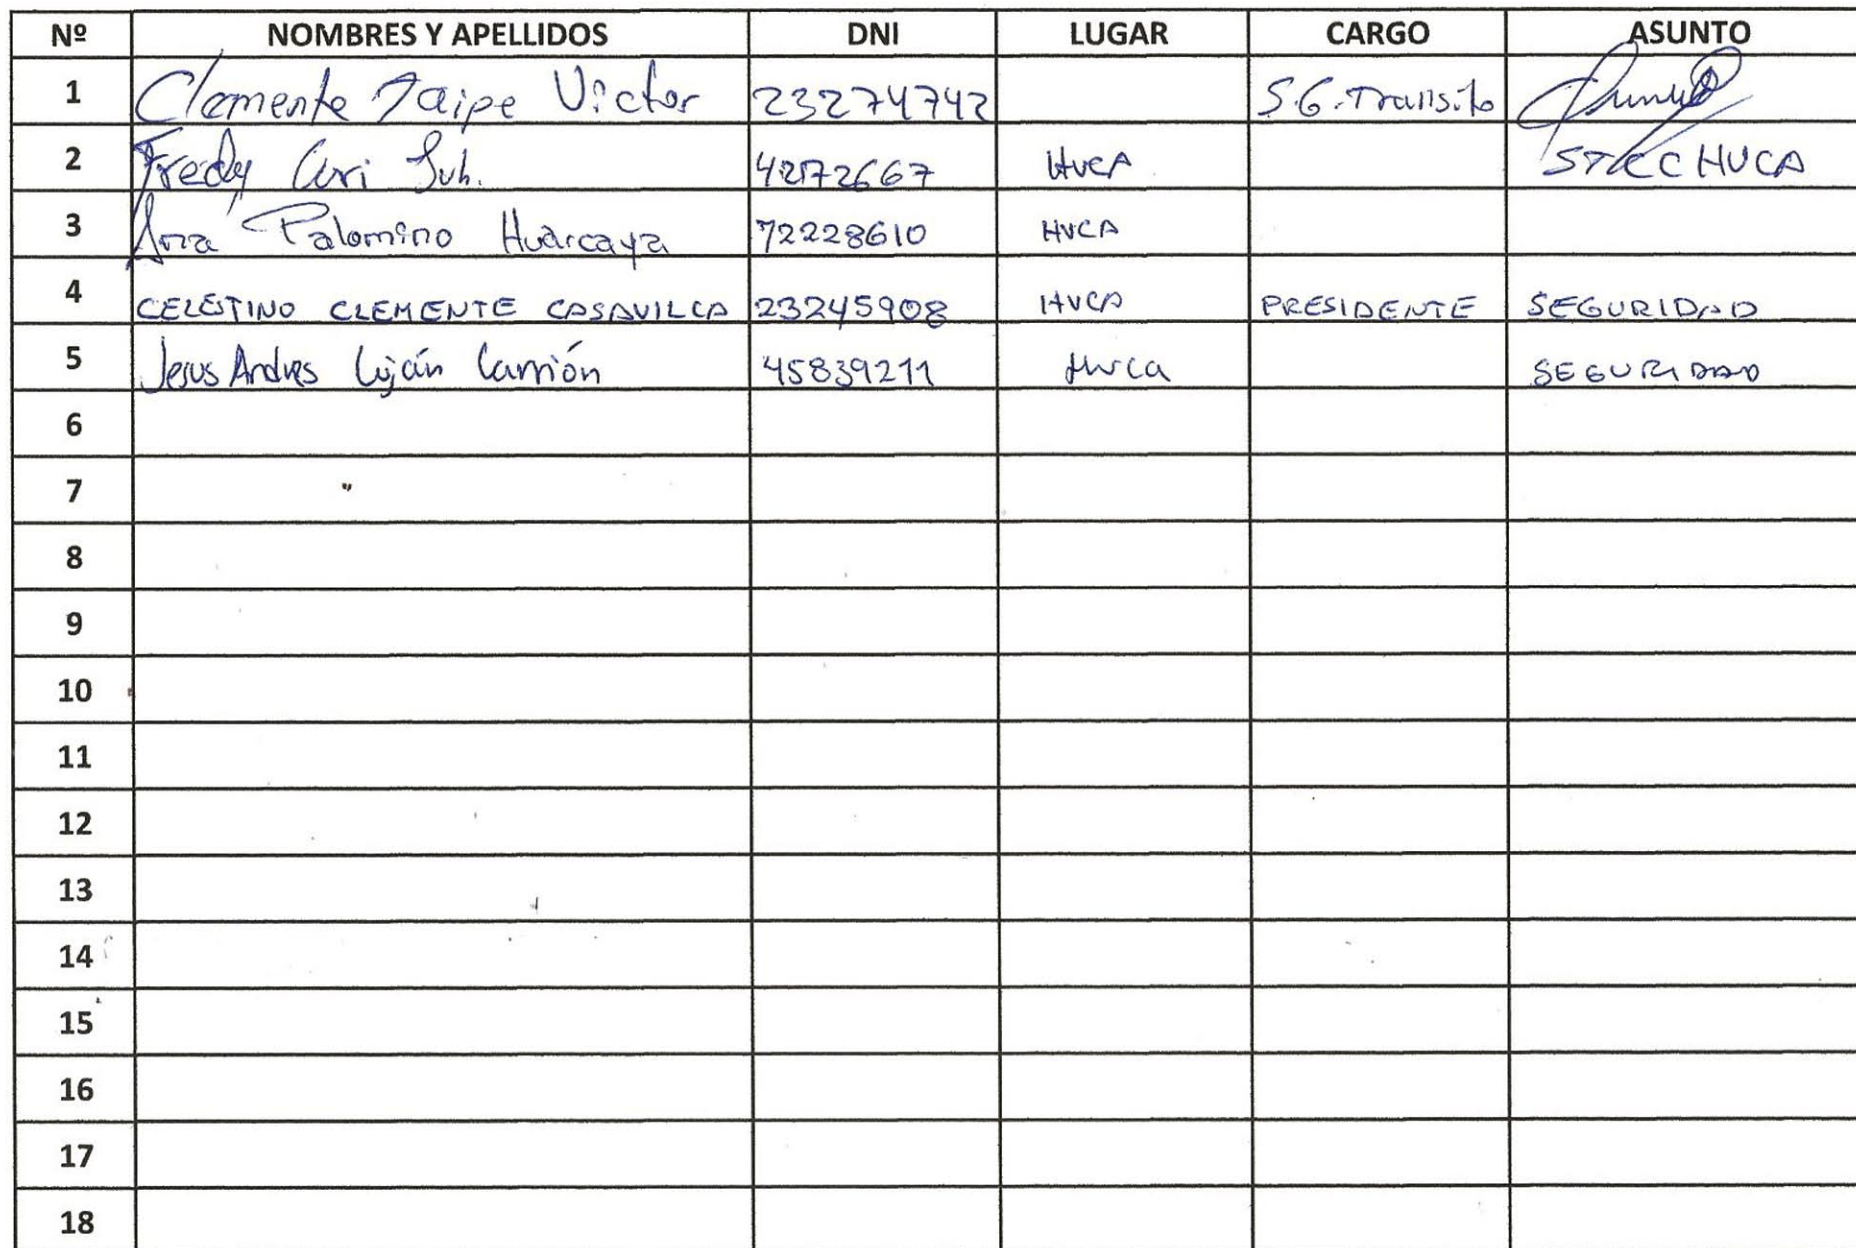 Nº NOMBRES Y APELLIDOS DNI LUGAR CARGO ASUNTO
1 Clemente Taipe Victor 23274742 S.G. Transito
2 Fredy Cari 42172667 HVCA HVCA
3 Ana Palomino Huarcaya 72228610 HVCA
4 CELESTINO CLEMENTE CASAVILCA 23245908 HVCA PRESIDENTE SEGURIDAD
5 Jesus Andres Luján Carrión 45839211 Hvca SEGURIDAD
6
7
8
9
10
11
12
13
14
15
16
17
18